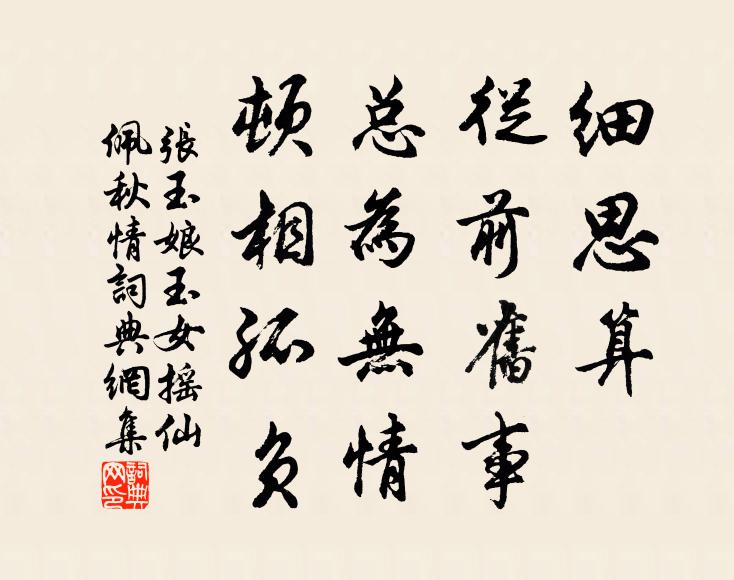 细思算
從前舊事
总為無情
顿相孤负
張玉娘玉女摇仙
佩秋情詞典網集
詞典网印